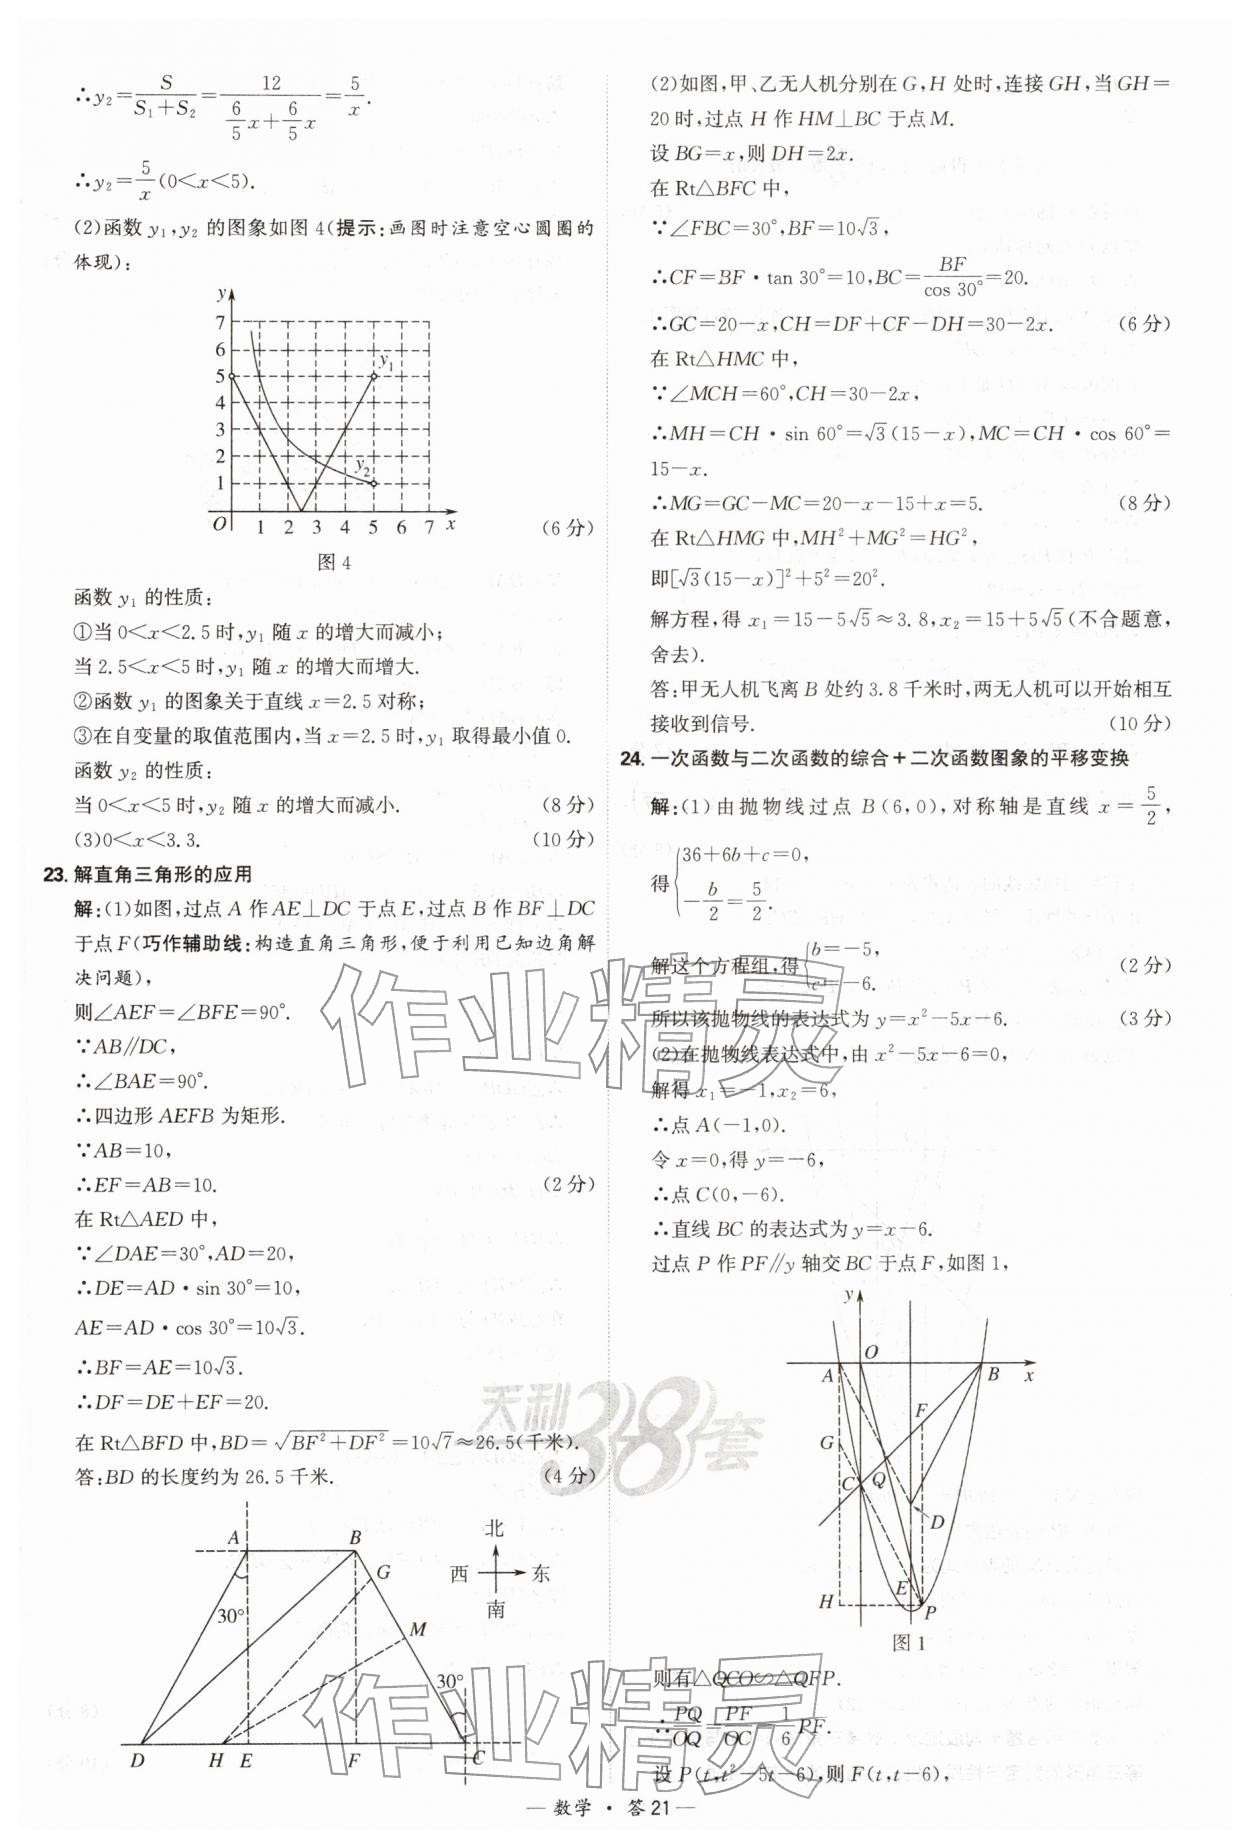 ∴y₂=S/(S₁+S₂)=12/(6/5x+6/5x)=5/x.
∴y₂=5/x(0<x<5).
(2)函数 y₁,y₂ 的图象如图 4(提示:画图时注意空心圆圈的
体现):
y
7
6
5
4
3
2
1
O 1 2 3 4 5 6 7 x
y₁
y₂
(6 分)
图 4
函数 y₁ 的性质:
①当 0<x<2.5 时,y₁ 随 x 的增大而减小;
当 2.5<x<5 时,y₁ 随 x 的增大而增大.
②函数 y₁ 的图象关于直线 x=2.5 对称;
③在自变量的取值范围内,当 x=2.5 时,y₁ 取得最小值 0.
函数 y₂ 的性质:
当 0<x<5 时,y₂ 随 x 的增大而减小. (8 分)
(3)0<x<3.3. (10 分)
23. 解直角三角形的应用
解:(1)如图,过点 A 作 AE⊥DC 于点 E,过点 B 作 BF⊥DC
于点 F(巧作辅助线:构造直角三角形,便于利用已知边角解
决问题),
则∠AEF=∠BFE=90°.
∵AB∥DC,
∴∠BAE=90°.
∴四边形 AEFB 为矩形.
∵AB=10,
∴EF=AB=10. (2 分)
在 Rt△AED 中,
∵∠DAE=30°,AD=20,
∴DE=AD·sin 30°=10,
AE=AD·cos 30°=10√3.
∴BF=AE=10√3.
∴DF=DE+EF=20.
在 Rt△BFD 中,BD=√(BF²+DF²)=10√7≈26.5(千米).
答:BD 的长度约为 26.5 千米. (4 分)
A B G M
30° 30°
D H E F C
北
西 东
南
(2)如图,甲、乙无人机分别在 G,H 处时,连接 GH,当 GH=
20 时,过点 H 作 HM⊥BC 于点 M.
设 BG=x,则 DH=2x.
在 Rt△BFC 中,
∵∠FBC=30°,BF=10√3,
∴CF=BF·tan 30°=10,BC=BF/cos 30°=20.
∴GC=20-x,CH=DF+CF-DH=30-2x. (6 分)
在 Rt△HMC 中,
∵∠MCH=60°,CH=30-2x,
∴MH=CH·sin 60°=√3(15-x),MC=CH·cos 60°=
15-x.
∴MG=GC-MC=20-x-15+x=5. (8 分)
在 Rt△HMG 中,MH²+MG²=HG²,
即[√3(15-x)]²+5²=20².
解方程,得 x₁=15-5√5≈3.8,x₂=15+5√5(不合题意,
舍去).
答:甲无人机飞离 B 处约 3.8 千米时,两无人机可以开始相互
接收到信号. (10 分)
24. 一次函数与二次函数的综合+二次函数图象的平移变换
解:(1)由抛物线过点 B(6,0),对称轴是直线 x=5/2,
得{36+6b+c=0,
-b/2=5/2.
解这个方程组,得{b=-5,
c=-6. (2 分)
所以该抛物线的表达式为 y=x²-5x-6. (3 分)
(2)在抛物线表达式中,由 x²-5x-6=0,
解得 x₁=-1,x₂=6,
∴点 A(-1,0).
令 x=0,得 y=-6,
∴点 C(0,-6).
∴直线 BC 的表达式为 y=x-6.
过点 P 作 PF∥y 轴交 BC 于点 F,如图 1,
y
O
A B x
F
G
C Q
D
E
H P
图 1
则有△QCO∽△QFP.
∴PQ/OQ=PF/OC=1/6PF.
设 P(t,t²-5t-6),则 F(t,t-6),
作业精灵
天利38套
作业精灵
— 数学 · 答 21 —